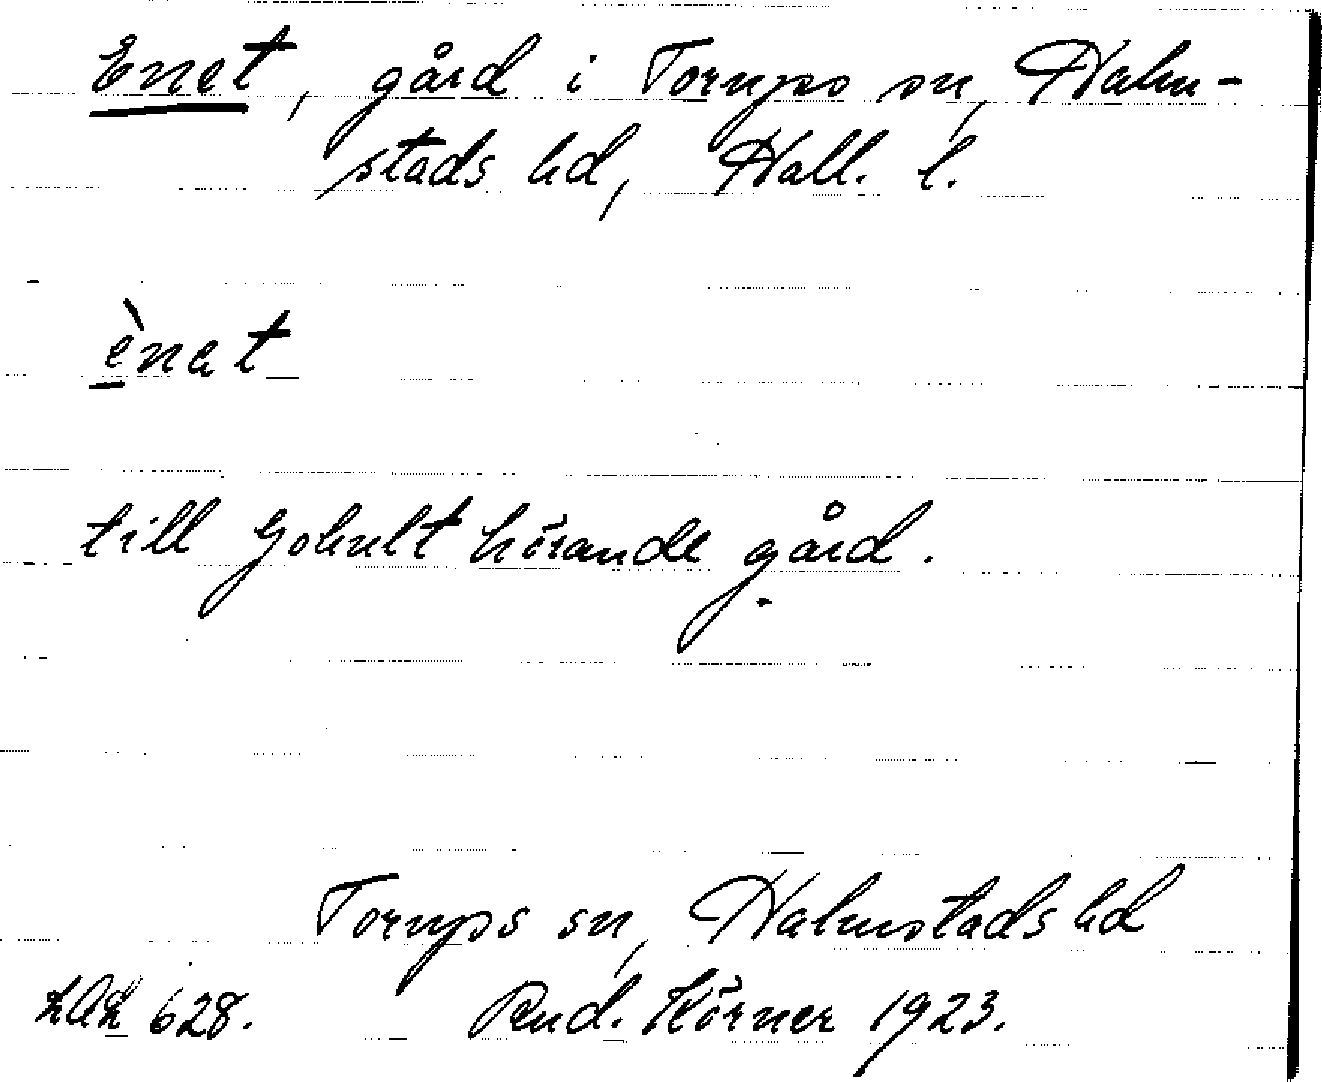 Enet, gård i Torups sn, Halm-
stads hd, Hall. l.
ènat
till Gokult hörande gård.
Torups sn, Halmstads hd
628. Rud. Körner 1923.